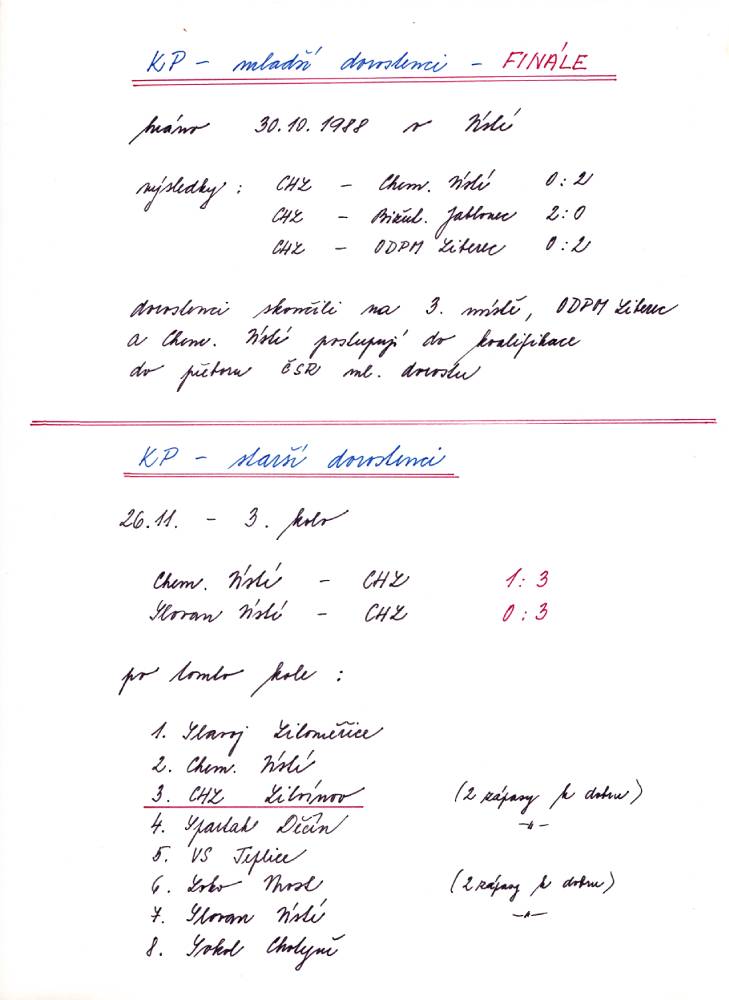 KP - mladší dorostenci - FINÁLE
hráno 30.10.1988 v Ústí
výsledky: CHZ - Chem. Ústí 0:2
CHZ - Bižut. Jablonec 2:0
CHZ - ODPM Liberec 0:2
dorostenci skončili na 3. místě, ODPM Liberec
a Chem. Ústí postupují do kvalifikace
do přeboru ČSR ml. dorostu
KP - starší dorostenci
26.11. - 3. kolo
Chem. Ústí - CHZ 1:3
Slovan Ústí - CHZ 0:3
po tomto kole:
1. Slavoj Litoměřice
2. Chem. Ústí
3. CHZ Litvínov (2 zápasy k dobru)
4. Spartak Děčín -"-
5. VS Teplice
6. Loko Most (2 zápasy k dobru)
7. Slovan Ústí -"-
8. Sokol Chotyně